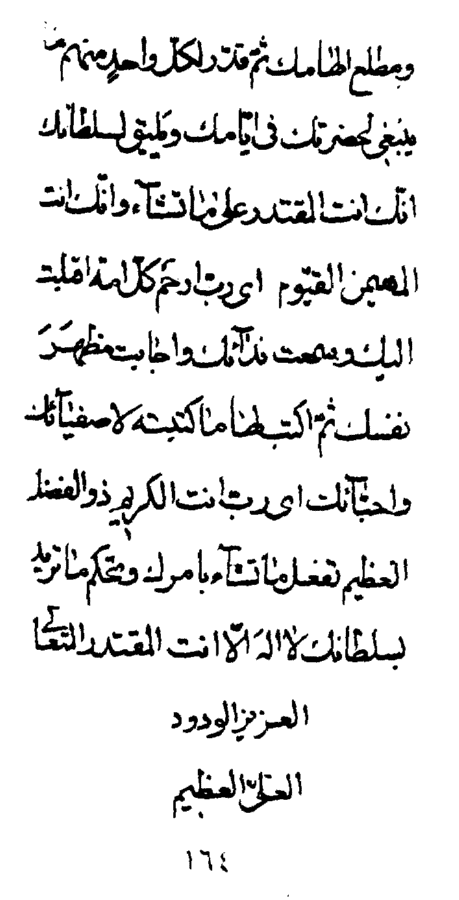 ومطلع الهامك ثمّ قدّر لكلّ واحدٍ منهم ما
ينبغي لحضرتك في ايّامك ويليق لسلطانك
انّك انت المقتدر على ما تشآء وانّك انت
المهيمن القيّوم اى ربّ ارحم كلّ امة اقبلت
اليك وسمعت ندآئك واجابت مظهرَ
نفسك ثمّ اكتب لها ما كتبته لاصفيآئك
واحبّآئك اى ربّ انت الكريم ذو الفضل
العظيم تفعل ما تشآء بامرك وتحكم ما تريد
بسلطانك لا الهَ الّا انت المقتدر المتعالي
العزيز الودود
العليّ العظيم
١٦٤